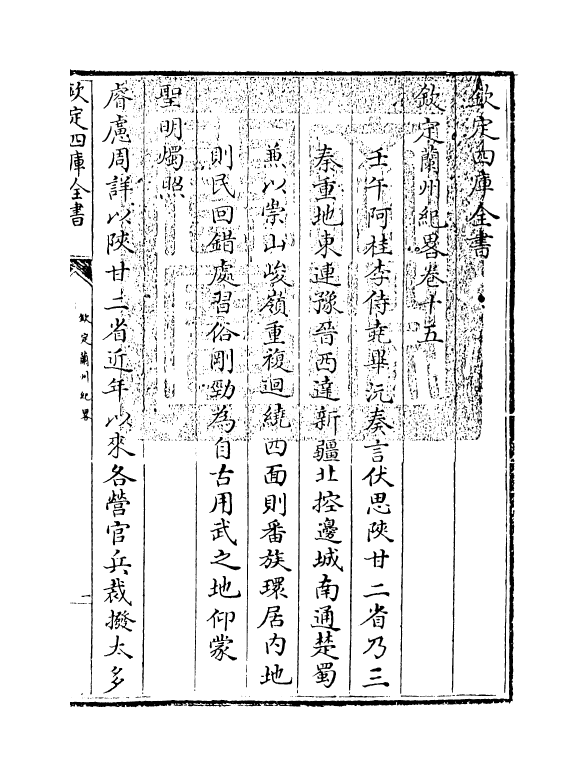 欽定四庫全書
欽定蘭州紀畧卷十五
壬午阿桂李侍堯畢沅奏言伏思陝甘二省乃三
秦重地東連豫晉西達新疆北控邊城南通楚蜀
兼以崇山峻嶺重複迴繞西面則番族環居内地
則民回錯處習俗剛勁為自古用武之地仰蒙
聖明燭照
睿慮周詳以陝甘二省近年以來各營官兵裁撥太多
欽定四庫全書
欽定蘭州紀畧
一